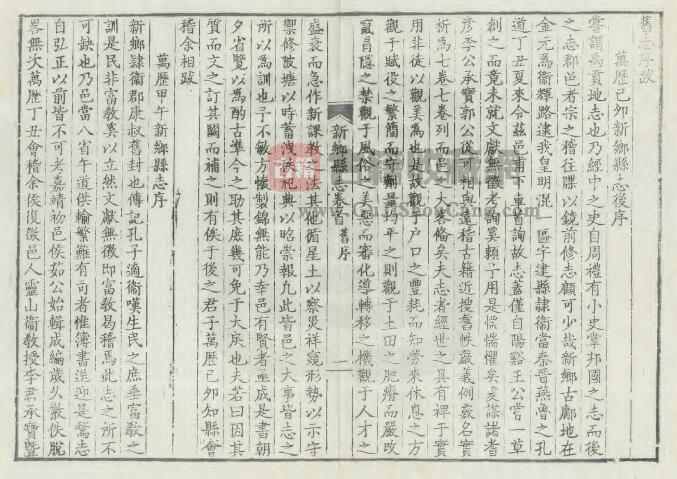 舊志序跋
萬歷己卯新鄉縣志後序
嘗謂禹貢地志也乃經中之史自周禮有小史掌邦國之志而後
之志郡邑者宗之稽往牒以鏡前修志顧可少哉新鄉古鄘地在
金元為衞輝路逮我皇明混一區宇建縣隸衞當秦晉燕魯之孔
道丁丑夏來令茲邑甫下車首詢故志蓋僅自陽谿王公嘗一草
創之而竟未就文獻無徵考詢奚賴予用是惴惴懼矣亥謀諸耆
彥李公承寶郭公從可相與遠稽古籍近搜舊帙嚴義例覈名實
析為七卷七卷列而邑之大畧備矣夫志者經世之具有裨于實
用非徒以觀美為也是故觀于户口之豐耗而知勞來休息之方
觀于賦役之繁簡而守劑量均平之則觀于土田之肥瘠而嚴
竄冒隱之禁觀于風俗之美惡而審化導轉移之機觀于人才之
新鄉縣志卷首 舊序
一
盛衰而急作新課敎之法其他循星土以察災祥窺形勢以示守
禦修陂塘以時蓄洩秩祀典以昭崇報凡此皆邑之大事皆志之
所以為訓也予不敏方懷製錦無能乃幸邑有賢者亟成是書朝
夕省覽以為酌古準今之助其庶幾可免于大戾也夫若曰因其
質而文之訂其闕而補之則有俟于後之君子萬歷己卯知縣會
稽余相跋
萬歷甲午新鄉縣志序
新鄉隸衞郡康叔舊封也傳記孔子適衞嘆生民之庶垂富敎之
訓是民非富敎奚以立然文獻無徵即富敎曷稽焉此志之所不
可缺也乃邑當八省午道供輸繁雖有司者惟簿書送迎是騖志
自弘正以前皆不可考嘉靖初邑侯如公始輯成編歲久散佚脫
畧無次萬歷丁丑會稽余侯復徵邑人靈山衞敎授李君承寶曁